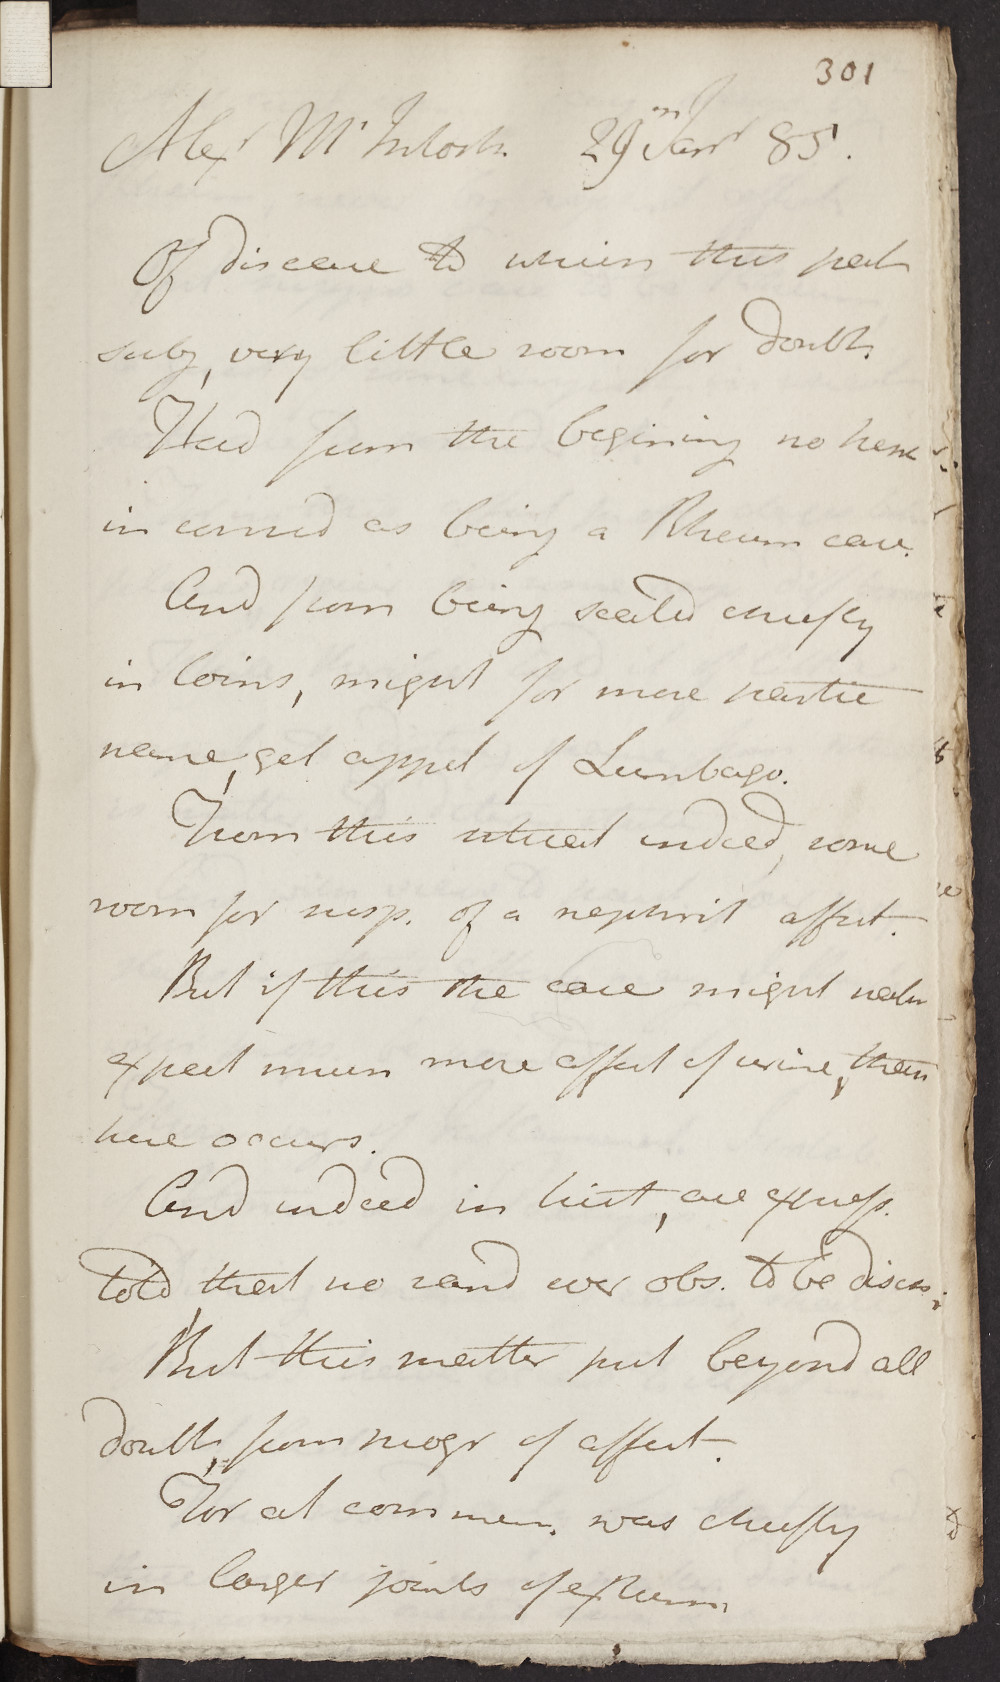 301
Alexr McIntosh. 29 Janr 85.
Of disease to which this pat
subj, very little room for doubt.
Had from the begining no hesit
in consid as being a Rheum case.
And from being seated chiefly
in loins, might for more partic
name, get appel of Lumbago.
From this indeed, some
room for susp. of a nephrit affect.
But if this the case might natur
expect much more affect of urine, than
here occurs.
And indeed in hist, are express.
told, that no sand ever obs. to be disch.
But this matter put beyond all
doubt, from progr of affect.
For at commen. was chiefly
in larger joints of extrem